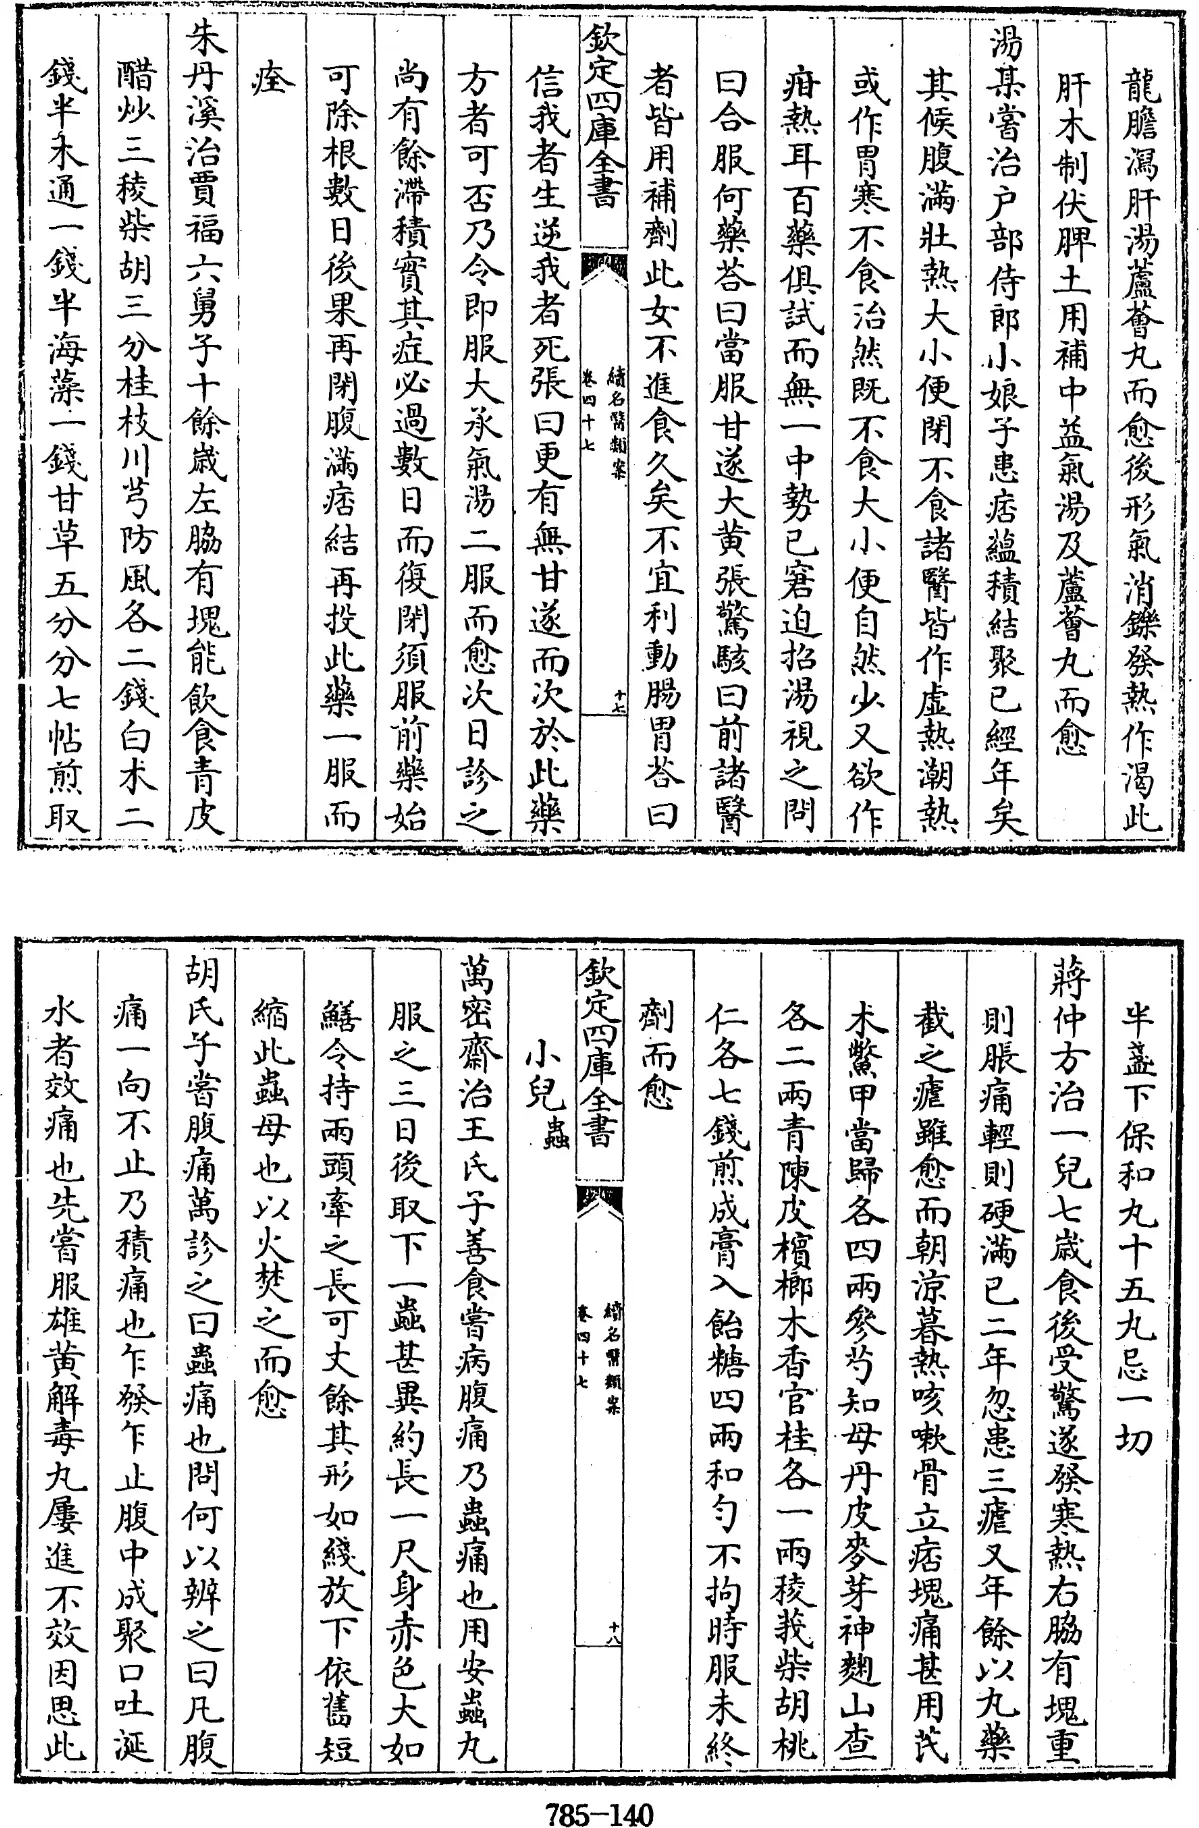 龍膽瀉肝湯蘆薈丸而愈後形氣消鑠發熱作渴此
肝木制伏脾土用補中益氣湯及蘆薈丸而愈
湯某嘗治户部侍郎小娘子患痞藴積結聚已經年矣
其候腹滿壯熱大小便閉不食諸醫皆作虚熱潮熱
或作胃寒不食治然既不食大小便自然少又欲作
疳熱耳百藥俱試而無一中勢已窘迫招湯視之問
曰合服何藥荅曰當服甘遂大黄張驚駭曰前諸醫
者皆用補劑此女不進食久矣不宜利動腸胃荅曰
欽定四庫全書
續名醫類案
卷四十七
十七
信我者生逆我者死張曰更有無甘遂而次於此藥
方者可否乃令即服大承氣湯二服而愈次日診之
尚有餘滯積實其症必過數日而復閉須服前藥始
可除根數日後果再閉腹滿痞結再投此藥一服而
痊
朱丹溪治賈福六舅子十餘歲左脇有塊能飲食青皮
醋炒三稜柴胡三分桂枝川芎防風各二錢白术二
錢半木通一錢半海藻一錢甘草五分分七帖煎取
半盞下保和丸十五丸忌一切
蔣仲方治一兒七歲食後受驚遂發寒熱右脇有塊重
則脹痛輕則硬滿已二年忽患三瘧又年餘以丸藥
截之瘧雖愈而朝凉暮熱咳嗽骨立痞塊痛甚用芪
术鱉甲當歸各四兩參芍知母丹皮麥芽神麯山查
各二兩青陳皮檳榔木香官桂各一兩稜莪柴胡桃
仁各七錢煎成膏入飴糖四兩和勻不拘時服未終
劑而愈
欽定四庫全書
續名醫類案
卷四十七
十八
小兒蟲
萬密齋治王氏子善食嘗病腹痛乃蟲痛也用安蟲丸
服之三日後取下一蟲甚異約長一尺身赤色大如
鱔令持兩頭牽之長可丈餘其形如綫放下依舊短
縮此蟲母也以火焚之而愈
胡氏子嘗腹痛萬診之曰蟲痛也問何以辨之曰凡腹
痛一向不止乃積痛也乍發乍止腹中成聚口吐涎
水者效痛也先嘗服雄黄解毒丸屢進不效因思此
785-140